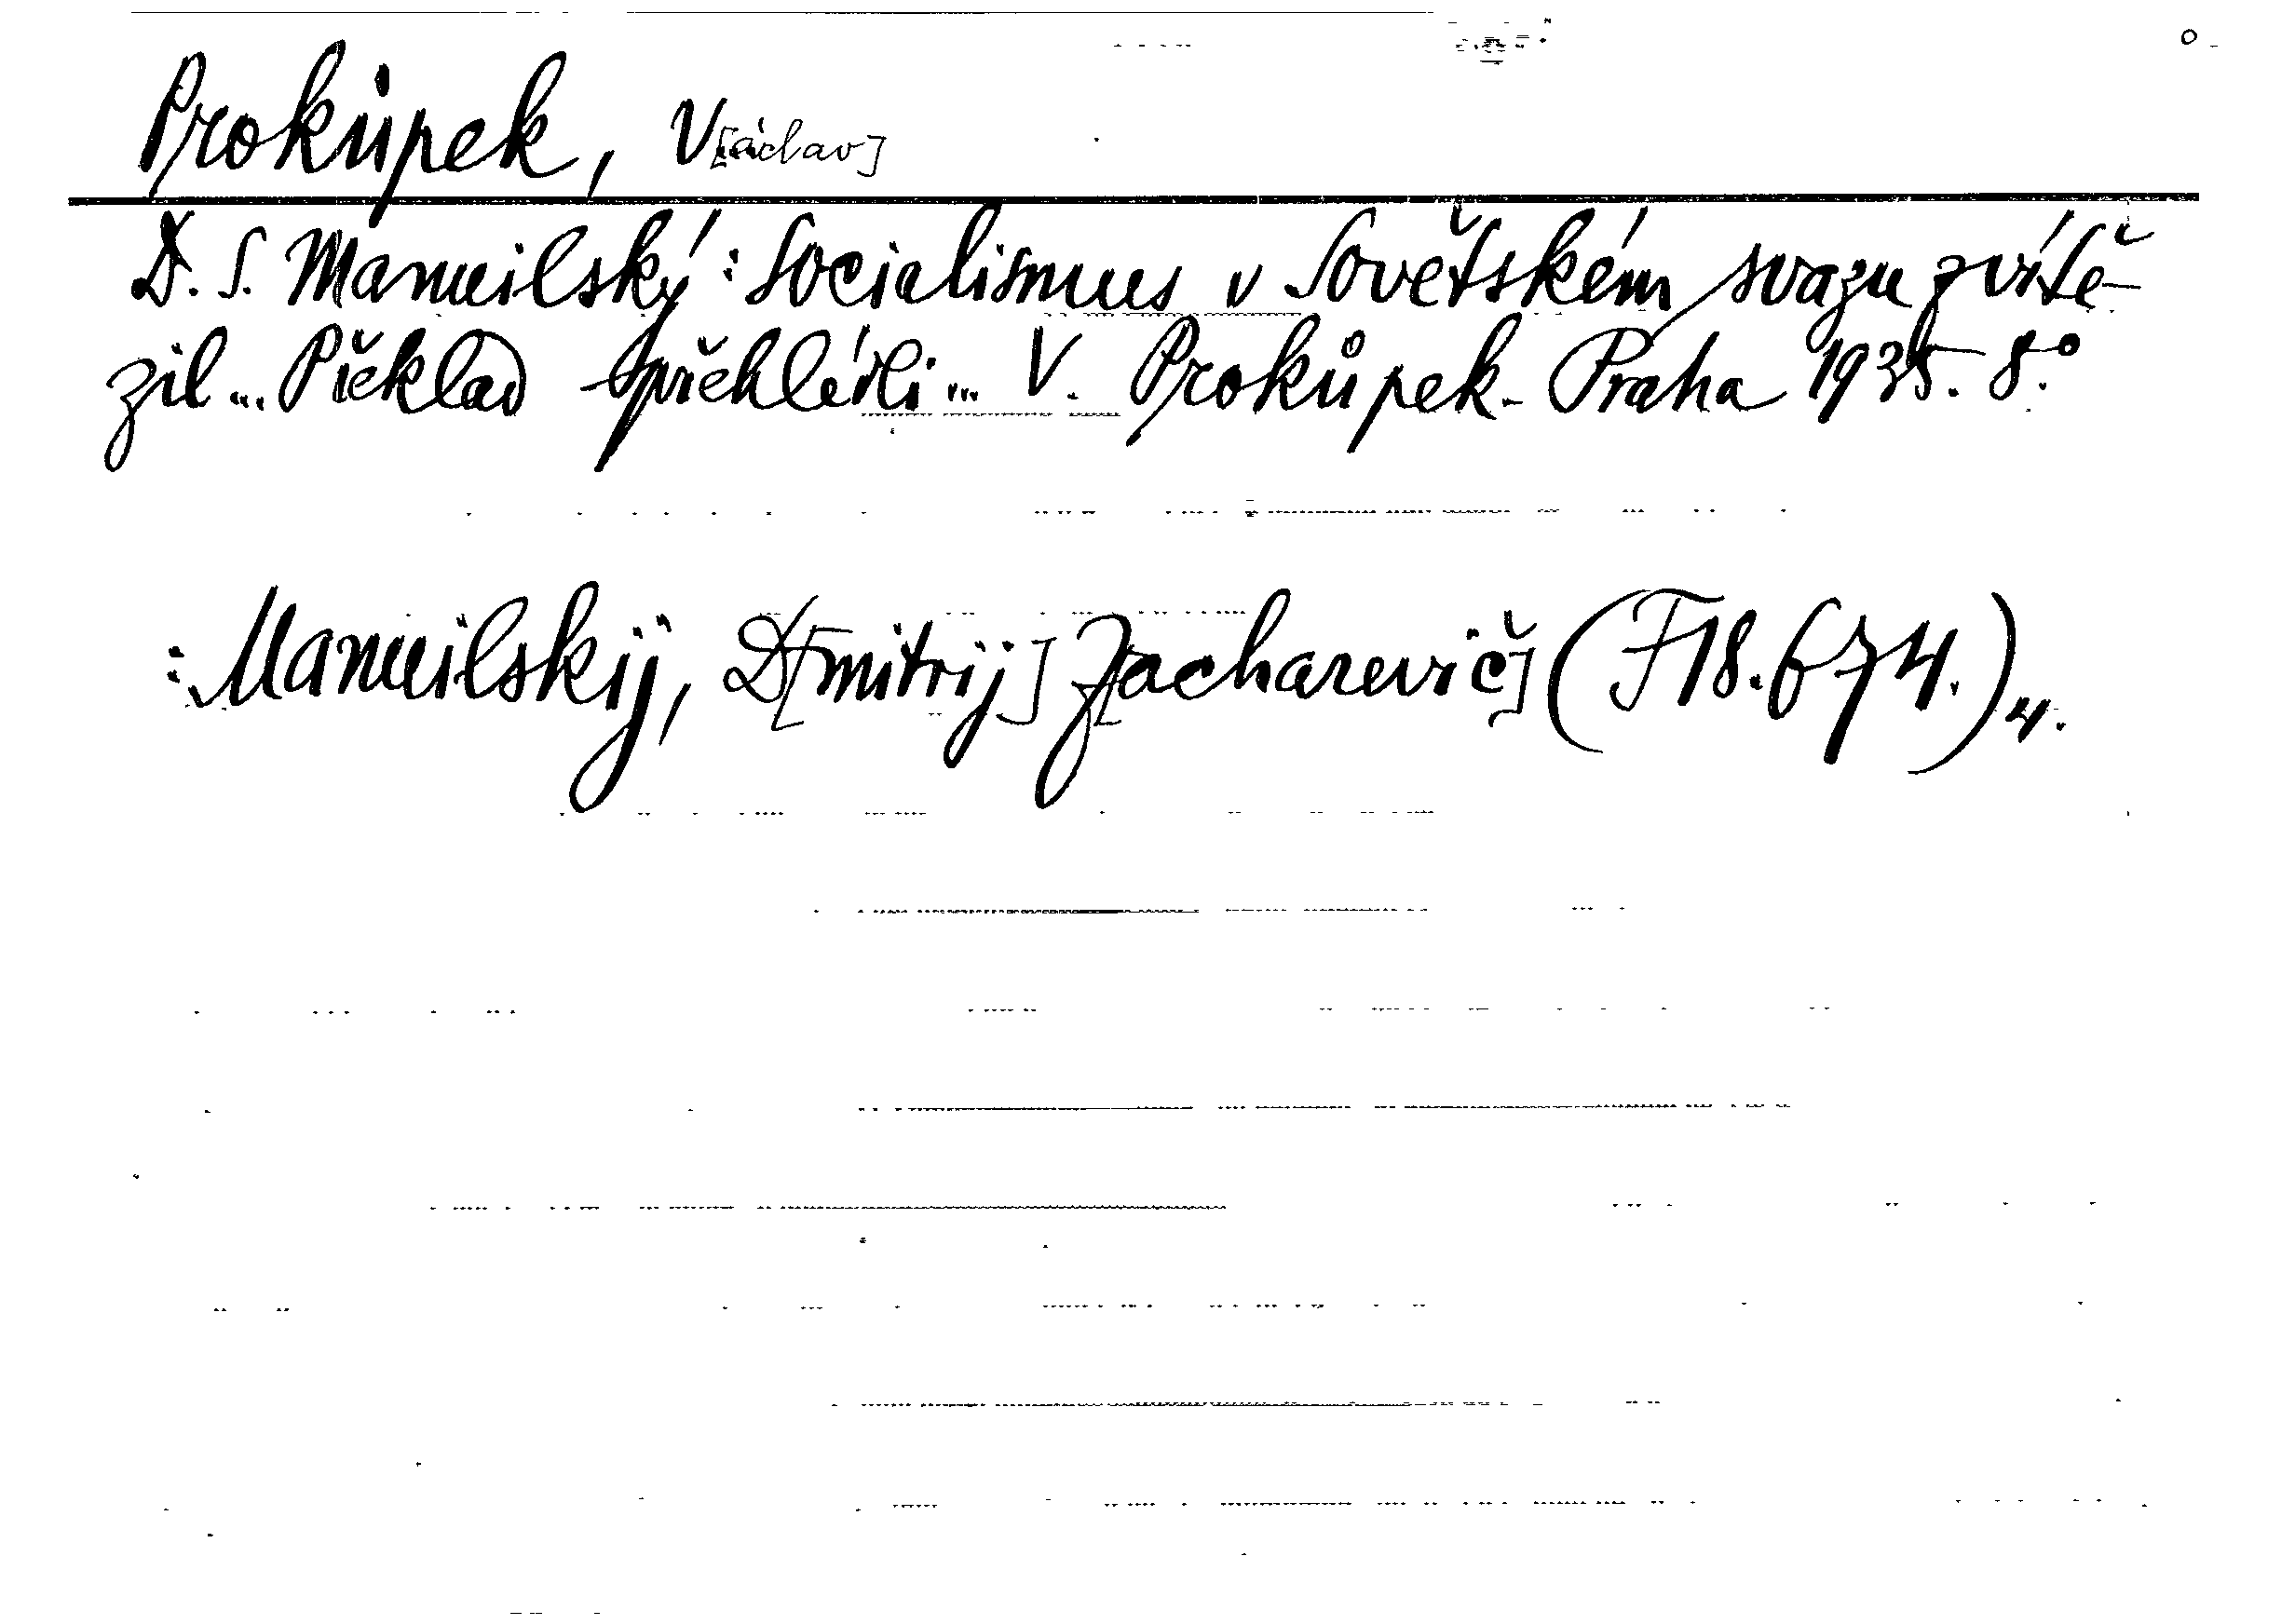 Prokůpek, V[áclav]
D. S. Manuilský: Socialismus v Sovětském svazu zvítě-
zil... Překlad přehlédli... V. Prokůpek. Praha 1935. 8.°
: Manuilskij, D[mitrij] Z[acharevič] (F 18.674.) 4.